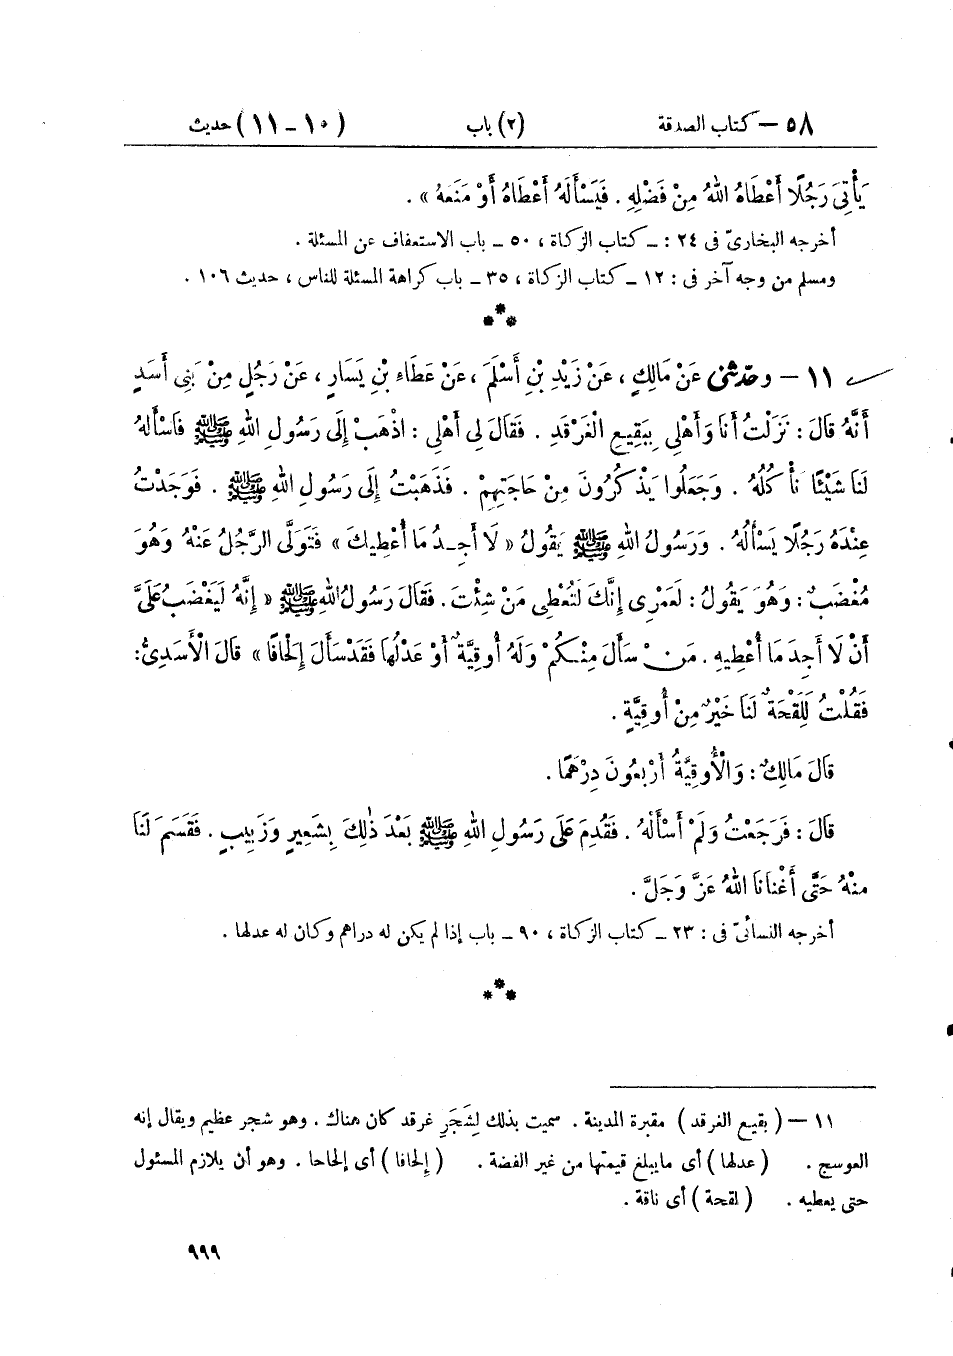 ٥٨ – كتاب الصدقة (٢) باب (١٠ – ١١) حديث
يَأْتِىَ رَجُلًا أَعْطَاهُ اللهُ مِنْ فَضْلِهِ . فَيَسْأَلَهُ أَعْطَاهُ أَوْ مَنَعَهُ » .
أخرجه البخارىّ فى ٢٤ : ـ كتاب الزكاة ، ٥٠ ـ باب الاستعفاف عن المسئلة .
ومسلم من وجه آخر فى : ١٢ ـ كتاب الزكاة ، ٣٥ ـ باب كراهة المسئلة للناس ، حديث ١٠٦ .
***
١١ – وحدّثنى عَنْ مَالِكٍ ، عَنْ زَيْدِ بْنِ أَسْلَمَ ، عَنْ عَطَاءِ بْنِ يَسَارٍ ، عَنْ رَجُلٍ مِنْ بَنِى أَسَدٍ
أَنَّهُ قَالَ : نَزَلْتُ أَنَا وَأَهْلِى بِبَقِيعِ الْغَرْقَدِ . فَقَالَ لِى أَهْلِى : اذْهَبْ إِلَى رَسُولِ اللهِ ﷺ فَاسْأَلْهُ
لَنَا شَيْئًا نَأْكُلُهُ . وَجَعَلُوا يَذْكُرُونَ مِنْ حَاجَتِهِمْ . فَذَهَبْتُ إِلَى رَسُولِ اللهِ ﷺ . فَوَجَدْتُ
عِنْدَهُ رَجُلًا يَسْأَلُهُ . وَرَسُولُ اللهِ ﷺ يَقُولُ « لَا أَجِدُ مَا أُعْطِيكَ » فَتَوَلَّى الرَّجُلُ عَنْهُ وَهُوَ
مُغْضَبٌ : وَهُوَ يَقُولُ : لَعَمْرِى إِنَّكَ لَتُعْطِى مَنْ شِئْتَ . فَقَالَ رَسُولُ اللهِ ﷺ « إِنَّهُ لَيَغْضَبُ عَلَىَّ
أَنْ لَا أَجِدَ مَا أُعْطِيهِ . مَنْ سَأَلَ مِنْكُمْ وَلَهُ أُوقِيَّةٌ أَوْ عَدْلُهَا فَقَدْ سَأَلَ إِلْحَافًا » قَالَ الْأَسَدِىُّ :
فَقُلْتُ لَلَقْحَةٌ لَنَا خَيْرٌ مِنْ أُوقِيَّةٍ .
قَالَ مَالِكٌ : وَالْأُوقِيَّةُ أَرْبَعُونَ دِرْهَمًا .
قَالَ : فَرَجَعْتُ وَلَمْ أَسْأَلْهُ . فَقُدِمَ عَلَى رَسُولِ اللهِ ﷺ بَعْدَ ذٰلِكَ بِشَعِيرٍ وَزَبِيبٍ . فَقَسَمَ لَنَا
مِنْهُ حَتَّى أَغْنَانَا اللهُ عَزَّ وَجَلَّ .
أخرجه النسائىّ فى : ٢٣ ـ كتاب الزكاة ، ٩٠ ـ باب إذا لم يكن له دراهم وكان له عدلها .
***
١١ – ( بقيع الغرقد ) مقبرة المدينة . سميت بذلك لِشَجَرِ غرقد كان هناك . وهو شجر عظيم ويقال إنه
العوسج . ( عدلها ) أى مايبلغ قيمتها من غير الفضة . ( إلحافا ) أى إلحاحا . وهو أن يلازم المسئول
حتى يعطيه . ( لقحة ) أى ناقة .
٩٩٩